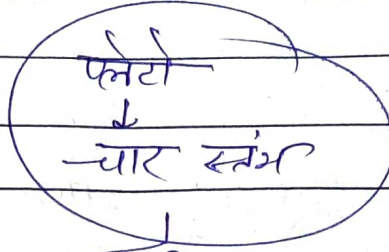 प्लेटो
↓
चार स्तंभ